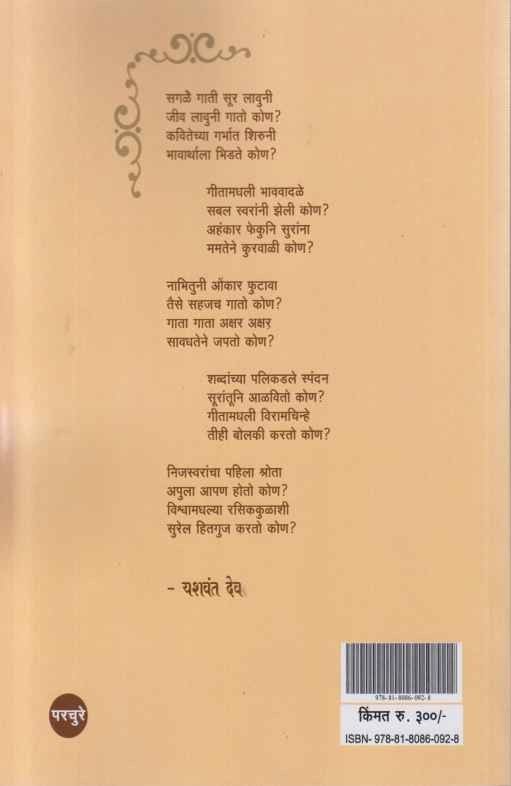 सगळे गाती सूर लावुनी
जीव लावुनी गातो कोण?
कवितेच्या गर्भात शिरुनी
भावार्थाला भिडते कोण?
गीतामधली भाववादळे
सबल स्वरांनी झेली कोण?
अहंकार फेकुनि सुरांना
ममतेने कुरवाळी कोण?
नाभितुनी ओंकार फुटावा
तैसे सहजच गातो कोण?
गाता गाता अक्षर अक्षर
सावधतेने जपतो कोण?
शब्दांच्या पलिकडले स्पंदन
सूरांतूनि आळवितो कोण?
गीतामधली विरामचिन्हे
तीही बोलकी करतो कोण?
निजस्वरांचा पहिला श्रोता
अपुला आपण होतो कोण?
विश्वामधल्या रसिककुळाशी
सुरेल हितगुज करतो कोण?
- यशवंत देव
978-81-8086-092-8
परचुरे
किंमत रु. ३००/-
ISBN- 978-81-8086-092-8